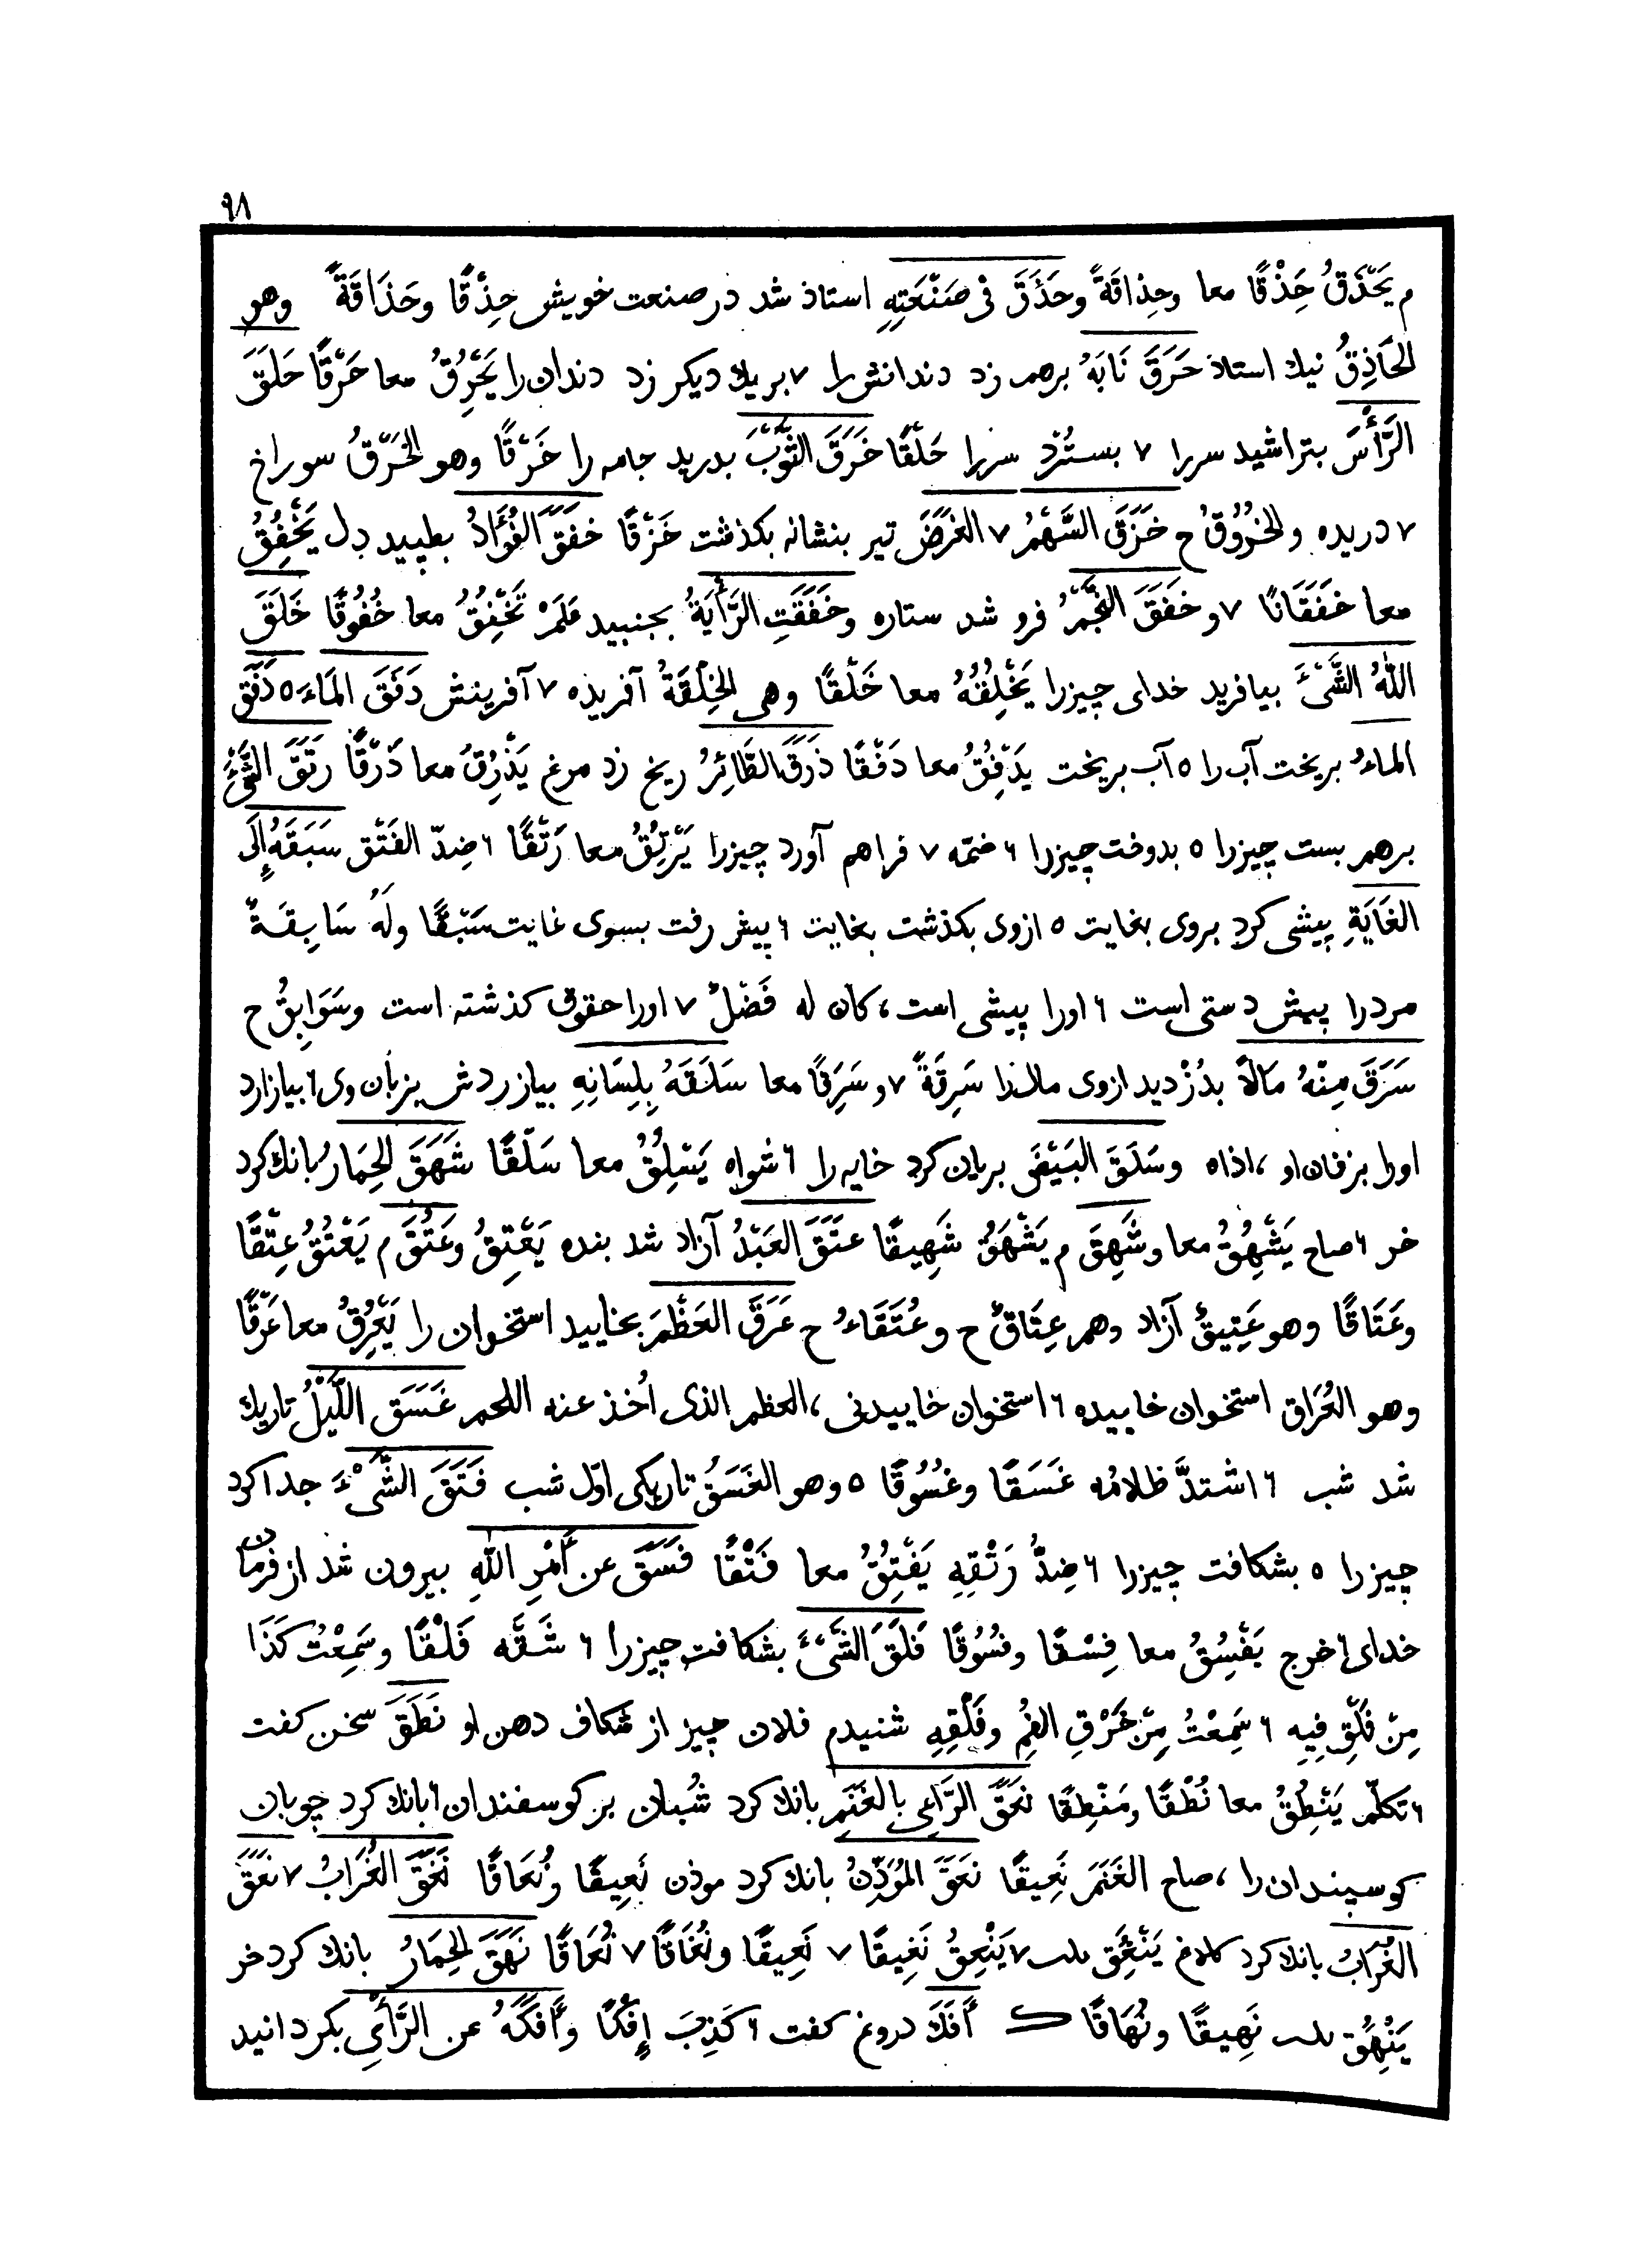 ٩٨
م يَحْذَقُ حَِذْقًا معا وحِذاقَةً وحَذَقَ فى صَنْعَتِهِ استاذ شد در صنعت خویش حِذْقًا وحَذَاقَةً وهو
الحَاذِقُ نیك استاذ حَرَقَ نَابَهُ برهم زد دندانش را ٧ بر یك دیکر زد دندان را يَحْرُِقُ معا حَرْقًا حَلَقَ
الرَّأْسَ بتراشید سررا ٧ بسترد سررا حَلْقًا خَرَقَ الثَّوْبَ بدرید جامه را خَرْقًا وهو الخَرْقُ سوراخ
٧ دریده والخُرُوقُ ح خَزَقَ السَّهْمُ ٧ الغَرَضَ تیر بنشانه بکذشت خَزْقًا خفَقَ الفُؤَادُ بطپید دل يَخْفُِقُ
معا خفَقَانًا ٧ وخفَقَ النَّجْمُ فرو شد ستاره وخَفَقَتِ الرَّايَةُ بجنبید عَلَمْ تَخْفُِقُ معا خُفُوقًا خَلَقَ
اللهُ الشَّىْءَ بیافرید خدای چیزرا يَخْلُِقُهُ معا خَلْقًا وهى الخِلْقَةُ آفریده ٧ آفرینش دَفَقَ المَاءَ ٥ دَفَقَ
الماءُ بریخت آب را ٥ آب بریخت يَدْفُِقُ معا دَفْقًا ذَرَقَ الطَّائِرُ ریخ زد مرغ يَذْرُِقُ معا ذَرْقًا رَتَقَ الشَّىْءَ
برهم بست چیزرا ٥ بدوخت چیزرا ٦ ضمّه ٧ فراهم آورد چیزرا يَرْتُِقُ معا رَتْقًا ٦ ضِدّ الفَتْق سَبَقَهُ إِلَى
الغَايَةِ پیشی کرد بروی بغایت ٥ ازوی بکذشت بغایت ٦ پیش رفت بسوی غایت سَبْقًا ولَهُ سَابِقَةٌ
مردرا پیش دستی است ٦ اورا پیشی است، کان له فَضْلٌ ٧ اورا حقوق کذشته است وسَوَابِقُ ح
سَرَقَ مِنْهُ مَالاً بدُزْدید ازوی مال را سَرِقَةً ٧ وسَرَِقًا معا سَلَقَهُ بِلِسَانِهِ بیازردش بزبان وی ٦ بیازارد
اورا بزفان او، اذاه وسَلَقَ البَيْضَ بریان کرد خایه را ٦ شواه يَسْلُِقُ معا سَلْقًا شَهَقَ الحِمَارُ بانك کرد
خر ٦ صاح يَشْهُِقُ معا وشَهِقَ م يَشْهَقُ شَهِيقًا عتَقَ العَبْدُ آزاد شد بنده يَعْتِقُ وعَتُقَ م يَعْتُقُ عِتْقًا
وعَتَاقًا وهو عَتِيقٌ آزاد وهم عِتَاقٌ ح وعُتَقَاءُ ح عَرَقَ العَظْمَ بخایید استخوان را يَعْرُِقُ معا عَرْقًا
وهو العُرَاق استخوان خاییده ٦ استخوان خاییدنی، العظم الذى اُخذ عنه اللحم غَسَقَ اللَّيْلُ تاریك
شد شب ٦ اشتدَّ ظلامُه غَسَقًا وغُسُوقًا ٥ وهو الغَسَقُ تاریکی اوّل شب فَتَقَ الشَّىْءَ جدا کرد
چیزرا ٥ بشکافت چیزرا ٦ ضِدُّ رَتْقِهِ يَفْتُِقُ معا فَتْقًا فسَقَ عن أَمْرِ اللهِ بیرون شد از فرمان
خدای ٦ خرج يَفْسُِقُ معا فِسْقًا وفسُوقًا فَلَقَ الشَّىْءَ بشکافت چیزرا ٦ شَقَّه فَلْقًا وسَمِعْتُ كَذَا
مِنْ فَلْقِ فِيهِ ٦ سَمِعْتُ مِنْ خَرْقِ الفَمِ وفَلْقِهِ شنیدم فلان چیز از شکاف دهن او نَطَقَ سخن کفت
٦ تکلّم يَنْطُِقُ معا نُطْقًا ومَنْطِقًا نعَقَ الرَّاعِى بالغَنَمِ بانك کرد شُبان بر کوسفندان ٦ بانك کرد چوبان
کوسپندان را، صاح الغَنَمَ نَعِيقًا نعَقَ المُؤَذِّنُ بانك کرد موذن نَعِيقًا ونُعَاقًا نَغَقَ الغُرَابُ ٧ نعَقَ
الغُرَابُ بانك کرد کلاغ يَنْغَِقُ ٧ يَنْعِقُ نَغِيقًا ٧ نَعِيقًا ونُغَاقًا ٧ نُعَاقًا نَهَقَ الحِمَارُ بانك کرد خر
يَنْهَِقُ نَهِيقًا ونُهَاقًا ك أَفَكَ دروغ کفت ٦ كَذِبَ إِفْكًا وأَفَكَهُ عن الرَّأْىِ بکردانید